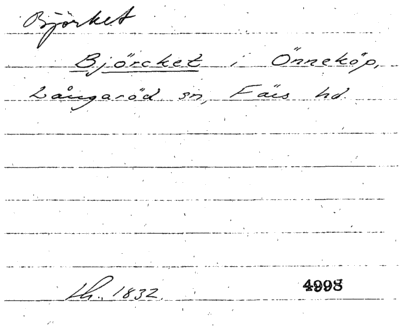 Björket
Björcket i Önneköp,
Långaröd sn, Färs hd.
Lh. 1832.
4998